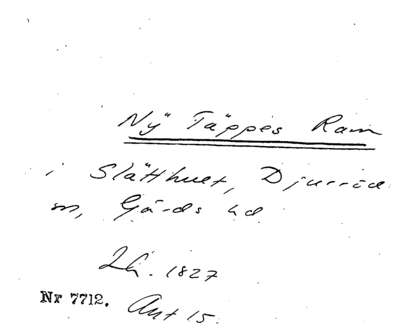 Nÿ Täppes Ram
i Slätthult, Djurröd
sn, Gärds hd
Lh. 1827
Nr 7712. Ant 15.